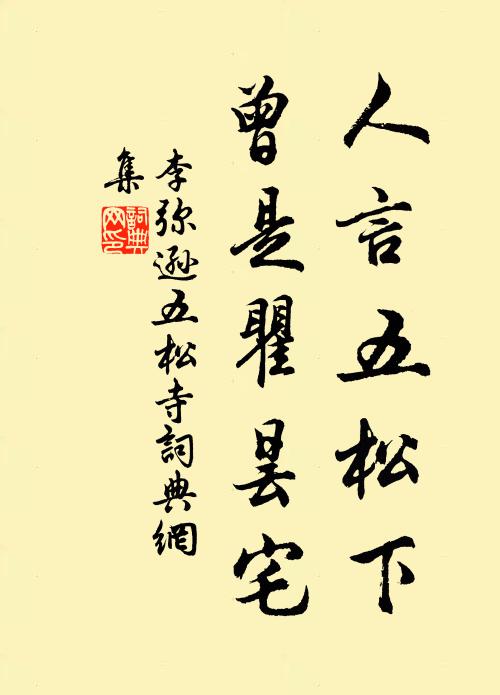 人言五松下
曾是瞿昙宅
李弥逊五松寺詞典網
集
詞典
网印